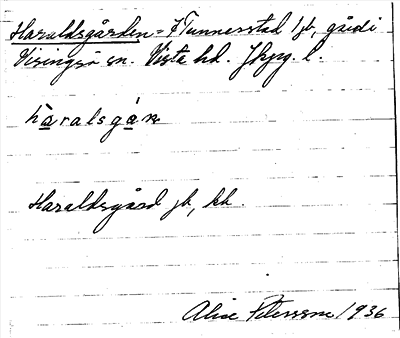 Haraldsgården = Tunnerstad 1 jb, gård i
Visingsö sn. Vista hd. Jkpg. l.
haralsgán
Haraldsgård jb, kb.
Alice Petersson 1936